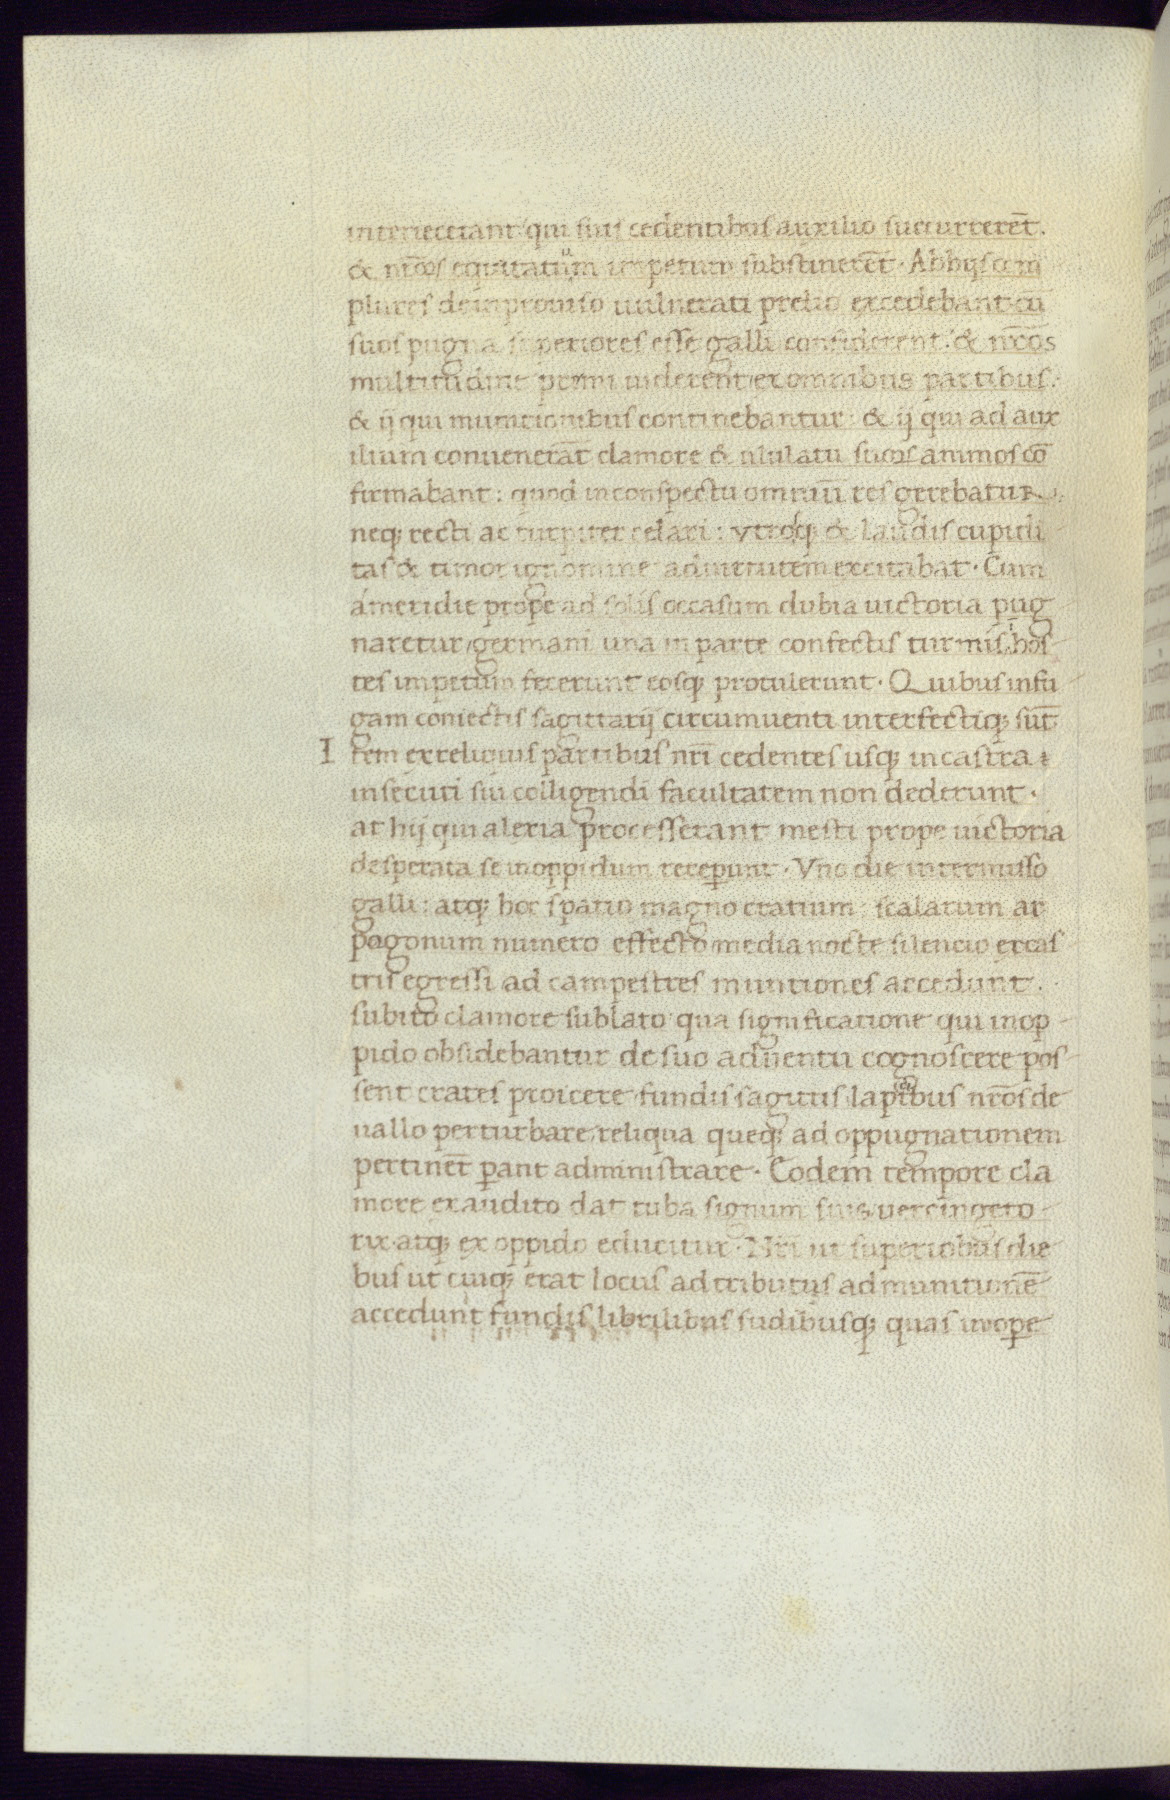 interiecerant qui suis cedentibus auxilio succurrerēt.
& nr̄os equitatūm impetum substinerēt. Ab hijs com
plures de improviso uulnerati prelio excedebant cū
suos pugna superiores esse galli confiderent: & nr̄os
multitudine premi uiderent ex omnibus partibus.
& ij qui munitionibus continebantur: & ij qui ad aux
ilium conuenerāt clamore & ululatu suos animos cō
firmabant: quod in conspectu omniū res gerebatur
neq; recti ac turpiter celari: vtrosq; & laudis cupidi
tas & timor ignominie ad uirtutem excitabat. Cum
a meridie prope ad solis occasum dubia uictoria pug
naretur/germani una in parte confectis turmis ī hos
tes impetum fecerunt eosq; protulerunt. Quibus in fu
gam coniectis sagittarij circumuenti interfectiq; sūt
Item ex reliquis partibus nr̄i cedentes usq; in castra
insecuti sui colligendi facultatem non dederunt.
at hij qui aleria processerant mesti prope uictoria
desperata se in oppidum receperunt. Vno die intermisso
galli: atq; hoc spatio magno cratium: scalarum ar
pagonum numero effecto/media nocte silencio ex cas
tris egressi ad campestres munitiones accedunt.
subito clamore sublato qua significatione qui in op
pido obsidebantur de suo aduentu cognoscere pos
sent crates proicere fundis sagitis lapidibus nr̄os de
uallo perturbare/reliqua queq; ad oppugnationem
pertinēt parant administrare. Eodem tempore cla
more exaudito dat tuba signum suis/uercingeto
rix atq; ex oppido educitur. Nr̄i ut superiobus die
bus ut cuiq; erat locus adtributus ad munitionē
accedunt fundis librilibus sudibusq; quas in ope